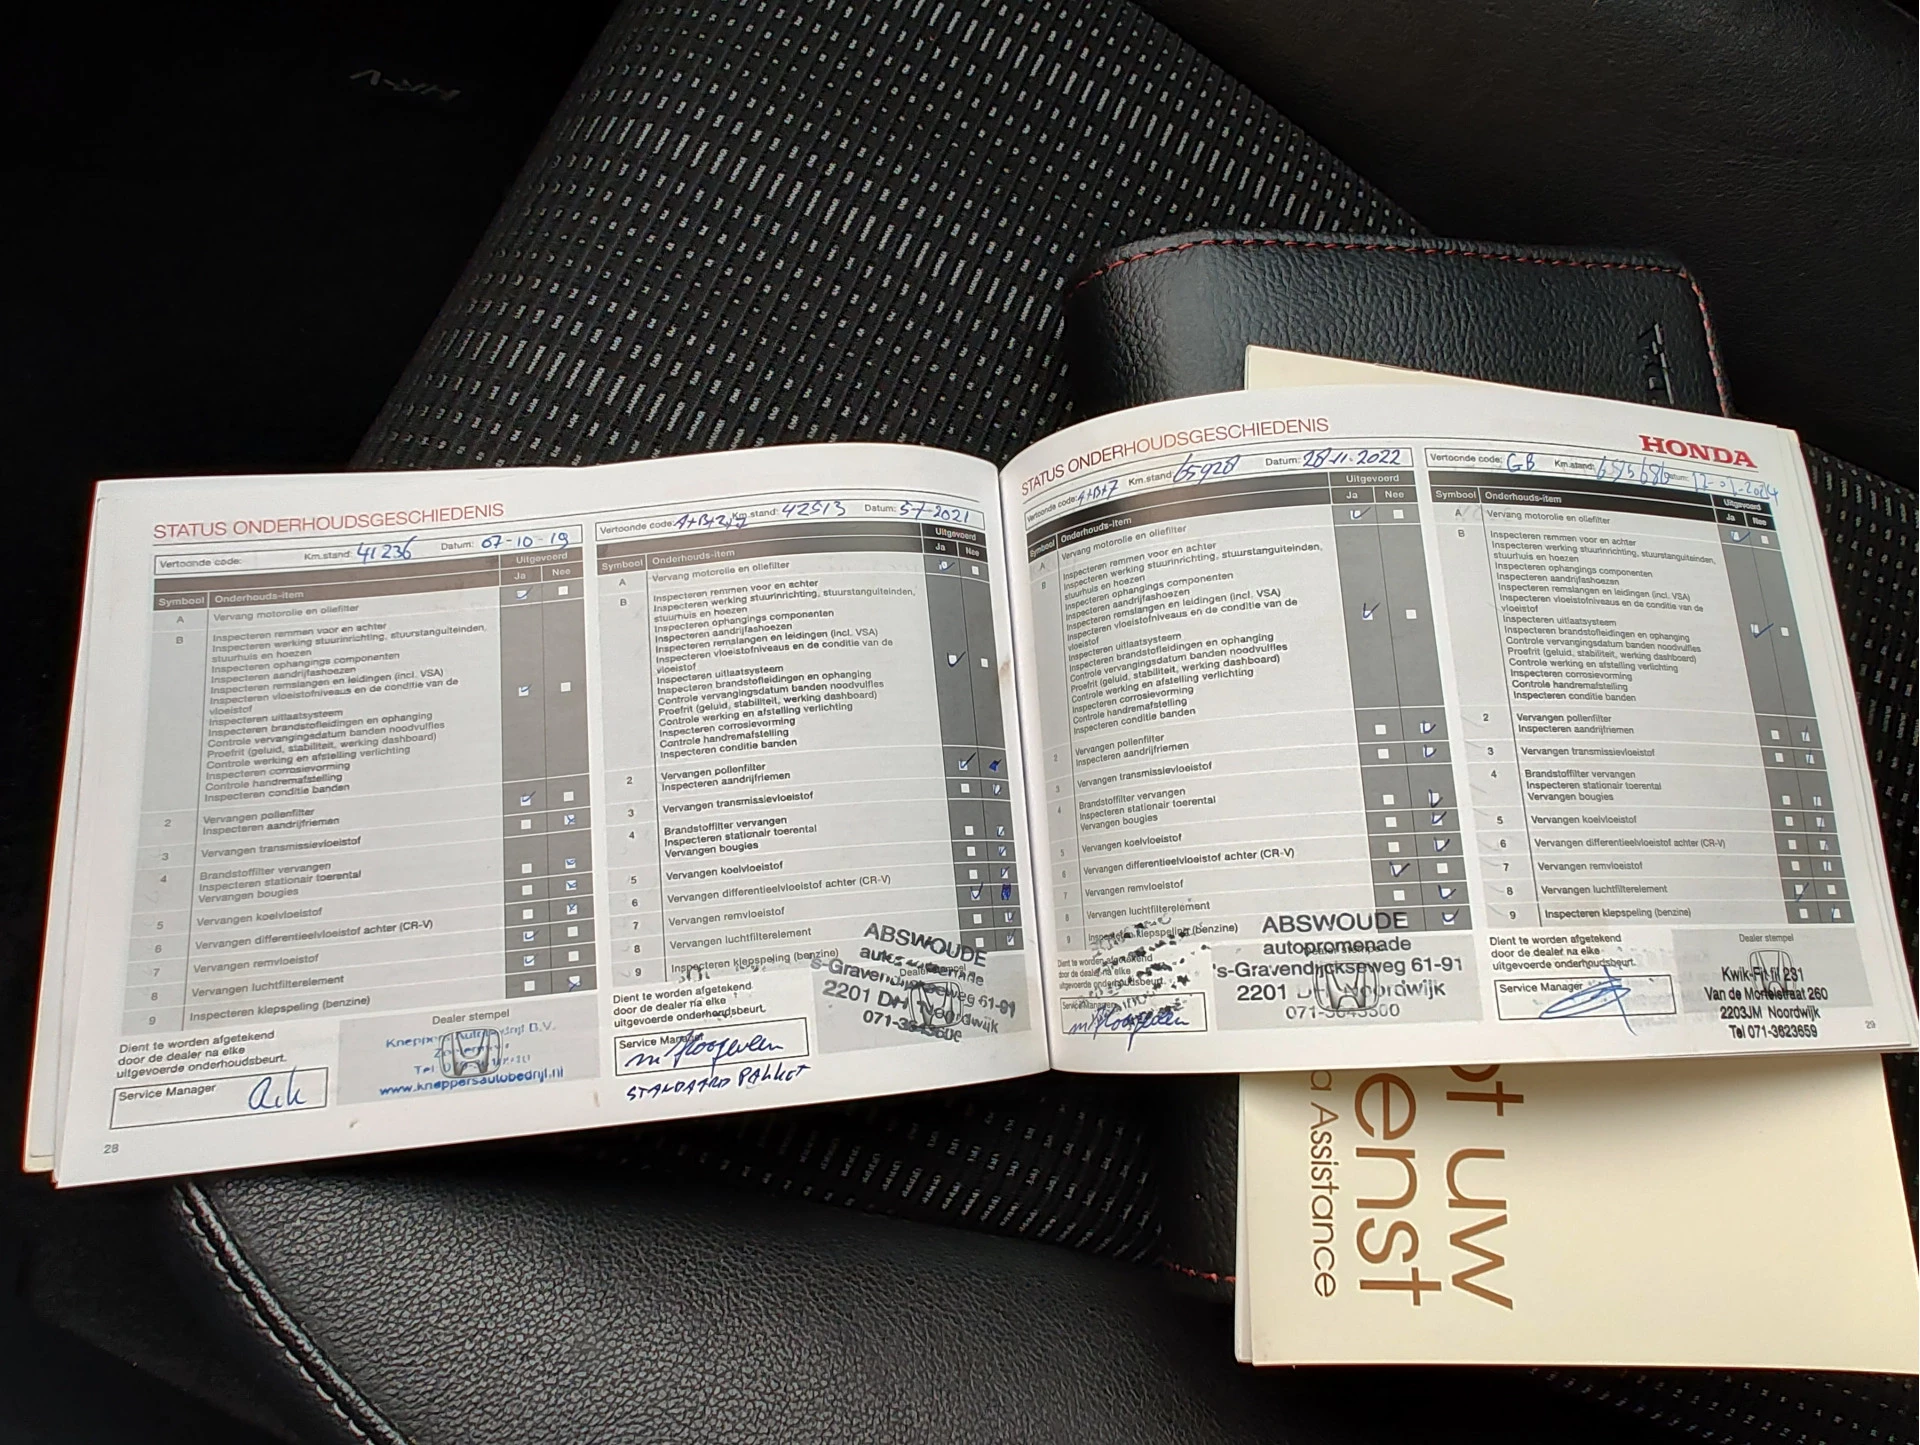 HR-V
STATUS ONDERHOUDSGESCHIEDENIS
Vertoonde code: Km.stand: 41236 Datum: 07-10-19
Symbool Onderhouds-item Uitgevoerd
Ja Nee
A Vervang motorolie en oliefilter
B Inspecteren remmen voor en achter
Inspecteren werking stuurinrichting, stuurstanguiteinden,
stuurhuis en hoezen
Inspecteren ophangings componenten
Inspecteren aandrijfashoezen
Inspecteren remslangen en leidingen (incl. VSA)
Inspecteren vloeistofniveaus en de conditie van de
vloeistof
Inspecteren uitlaatsysteem
Inspecteren brandstofleidingen en ophanging
Controle vervangingsdatum banden noodvulfles
Proefrit (geluid, stabiliteit, werking dashboard)
Controle werking en afstelling verlichting
Inspecteren corrosievorming
Controle handremafstelling
Inspecteren conditie banden
2 Vervangen pollenfilter
Inspecteren aandrijfriemen
3 Vervangen transmissievloeistof
4 Brandstoffilter vervangen
Inspecteren stationair toerental
Vervangen bougies
5 Vervangen koelvloeistof
6 Vervangen differentieelvloeistof achter (CR-V)
7 Vervangen remvloeistof
8 Vervangen luchtfilterelement
9 Inspecteren klepspeling (benzine)
Dient te worden afgetekend
door de dealer na elke
uitgevoerde onderhoudsbeurt.
Service Manager
Dealer stempel
www.kneppersautobedrijf.nl
28
Vertoonde code: Km.stand: 42513 Datum: 5-7-2021
Symbool Onderhouds-item Uitgevoerd
Ja Nee
A Vervang motorolie en oliefilter
B Inspecteren remmen voor en achter
Inspecteren werking stuurinrichting, stuurstanguiteinden,
stuurhuis en hoezen
Inspecteren ophangings componenten
Inspecteren aandrijfashoezen
Inspecteren remslangen en leidingen (incl. VSA)
Inspecteren vloeistofniveaus en de conditie van de
vloeistof
Inspecteren uitlaatsysteem
Inspecteren brandstofleidingen en ophanging
Controle vervangingsdatum banden noodvulfles
Proefrit (geluid, stabiliteit, werking dashboard)
Controle werking en afstelling verlichting
Inspecteren corrosievorming
Controle handremafstelling
Inspecteren conditie banden
2 Vervangen pollenfilter
Inspecteren aandrijfriemen
3 Vervangen transmissievloeistof
4 Brandstoffilter vervangen
Inspecteren stationair toerental
Vervangen bougies
5 Vervangen koelvloeistof
6 Vervangen differentieelvloeistof achter (CR-V)
7 Vervangen remvloeistof
8 Vervangen luchtfilterelement
9 Inspecteren klepspeling (benzine)
Dient te worden afgetekend
door de dealer na elke
uitgevoerde onderhoudsbeurt.
Service Manager
m Hoogeveen
STANDAARD PAKKET
ABSWOUDE
2201 DH Noordwijk
STATUS ONDERHOUDSGESCHIEDENIS
HONDA
Vertoonde code: A+B+7 Km.stand: 65928 Datum: 28-11-2022
Symbool Onderhouds-item Uitgevoerd
Ja Nee
A Vervang motorolie en oliefilter
B Inspecteren remmen voor en achter
Inspecteren werking stuurinrichting, stuurstanguiteinden,
stuurhuis en hoezen
Inspecteren ophangings componenten
Inspecteren aandrijfashoezen
Inspecteren remslangen en leidingen (incl. VSA)
Inspecteren vloeistofniveaus en de conditie van de
vloeistof
Inspecteren uitlaatsysteem
Inspecteren brandstofleidingen en ophanging
Controle vervangingsdatum banden noodvulfles
Proefrit (geluid, stabiliteit, werking dashboard)
Controle werking en afstelling verlichting
Inspecteren corrosievorming
Controle handremafstelling
Inspecteren conditie banden
2 Vervangen pollenfilter
Inspecteren aandrijfriemen
3 Vervangen transmissievloeistof
4 Brandstoffilter vervangen
Inspecteren stationair toerental
Vervangen bougies
5 Vervangen koelvloeistof
6 Vervangen differentieelvloeistof achter (CR-V)
7 Vervangen remvloeistof
8 Vervangen luchtfilterelement
9 Inspecteren klepspeling (benzine)
Dient te worden afgetekend
door de dealer na elke
uitgevoerde onderhoudsbeurt.
m Hoogeveen
ABSWOUDE
autopromenade
's-Gravendijckseweg 61-91
2201 Noordwijk
Vertoonde code: GB Km.stand: Datum:
Symbool Onderhouds-item Uitgevoerd
Ja Nee
A Vervang motorolie en oliefilter
B Inspecteren remmen voor en achter
Inspecteren werking stuurinrichting, stuurstanguiteinden,
stuurhuis en hoezen
Inspecteren ophangings componenten
Inspecteren aandrijfashoezen
Inspecteren remslangen en leidingen (incl. VSA)
Inspecteren vloeistofniveaus en de conditie van de
vloeistof
Inspecteren uitlaatsysteem
Inspecteren brandstofleidingen en ophanging
Controle vervangingsdatum banden noodvulfles
Proefrit (geluid, stabiliteit, werking dashboard)
Controle werking en afstelling verlichting
Inspecteren corrosievorming
Controle handremafstelling
Inspecteren conditie banden
2 Vervangen pollenfilter
Inspecteren aandrijfriemen
3 Vervangen transmissievloeistof
4 Brandstoffilter vervangen
Inspecteren stationair toerental
Vervangen bougies
5 Vervangen koelvloeistof
6 Vervangen differentieelvloeistof achter (CR-V)
7 Vervangen remvloeistof
8 Vervangen luchtfilterelement
9 Inspecteren klepspeling (benzine)
Dient te worden afgetekend
door de dealer na elke
uitgevoerde onderhoudsbeurt.
Service Manager
Dealer stempel
Kwik-Fit
Van de Mortelstraat 260
2203JM Noordwijk
Tel 071-3623659
29
ot uw
enst
a Assistance